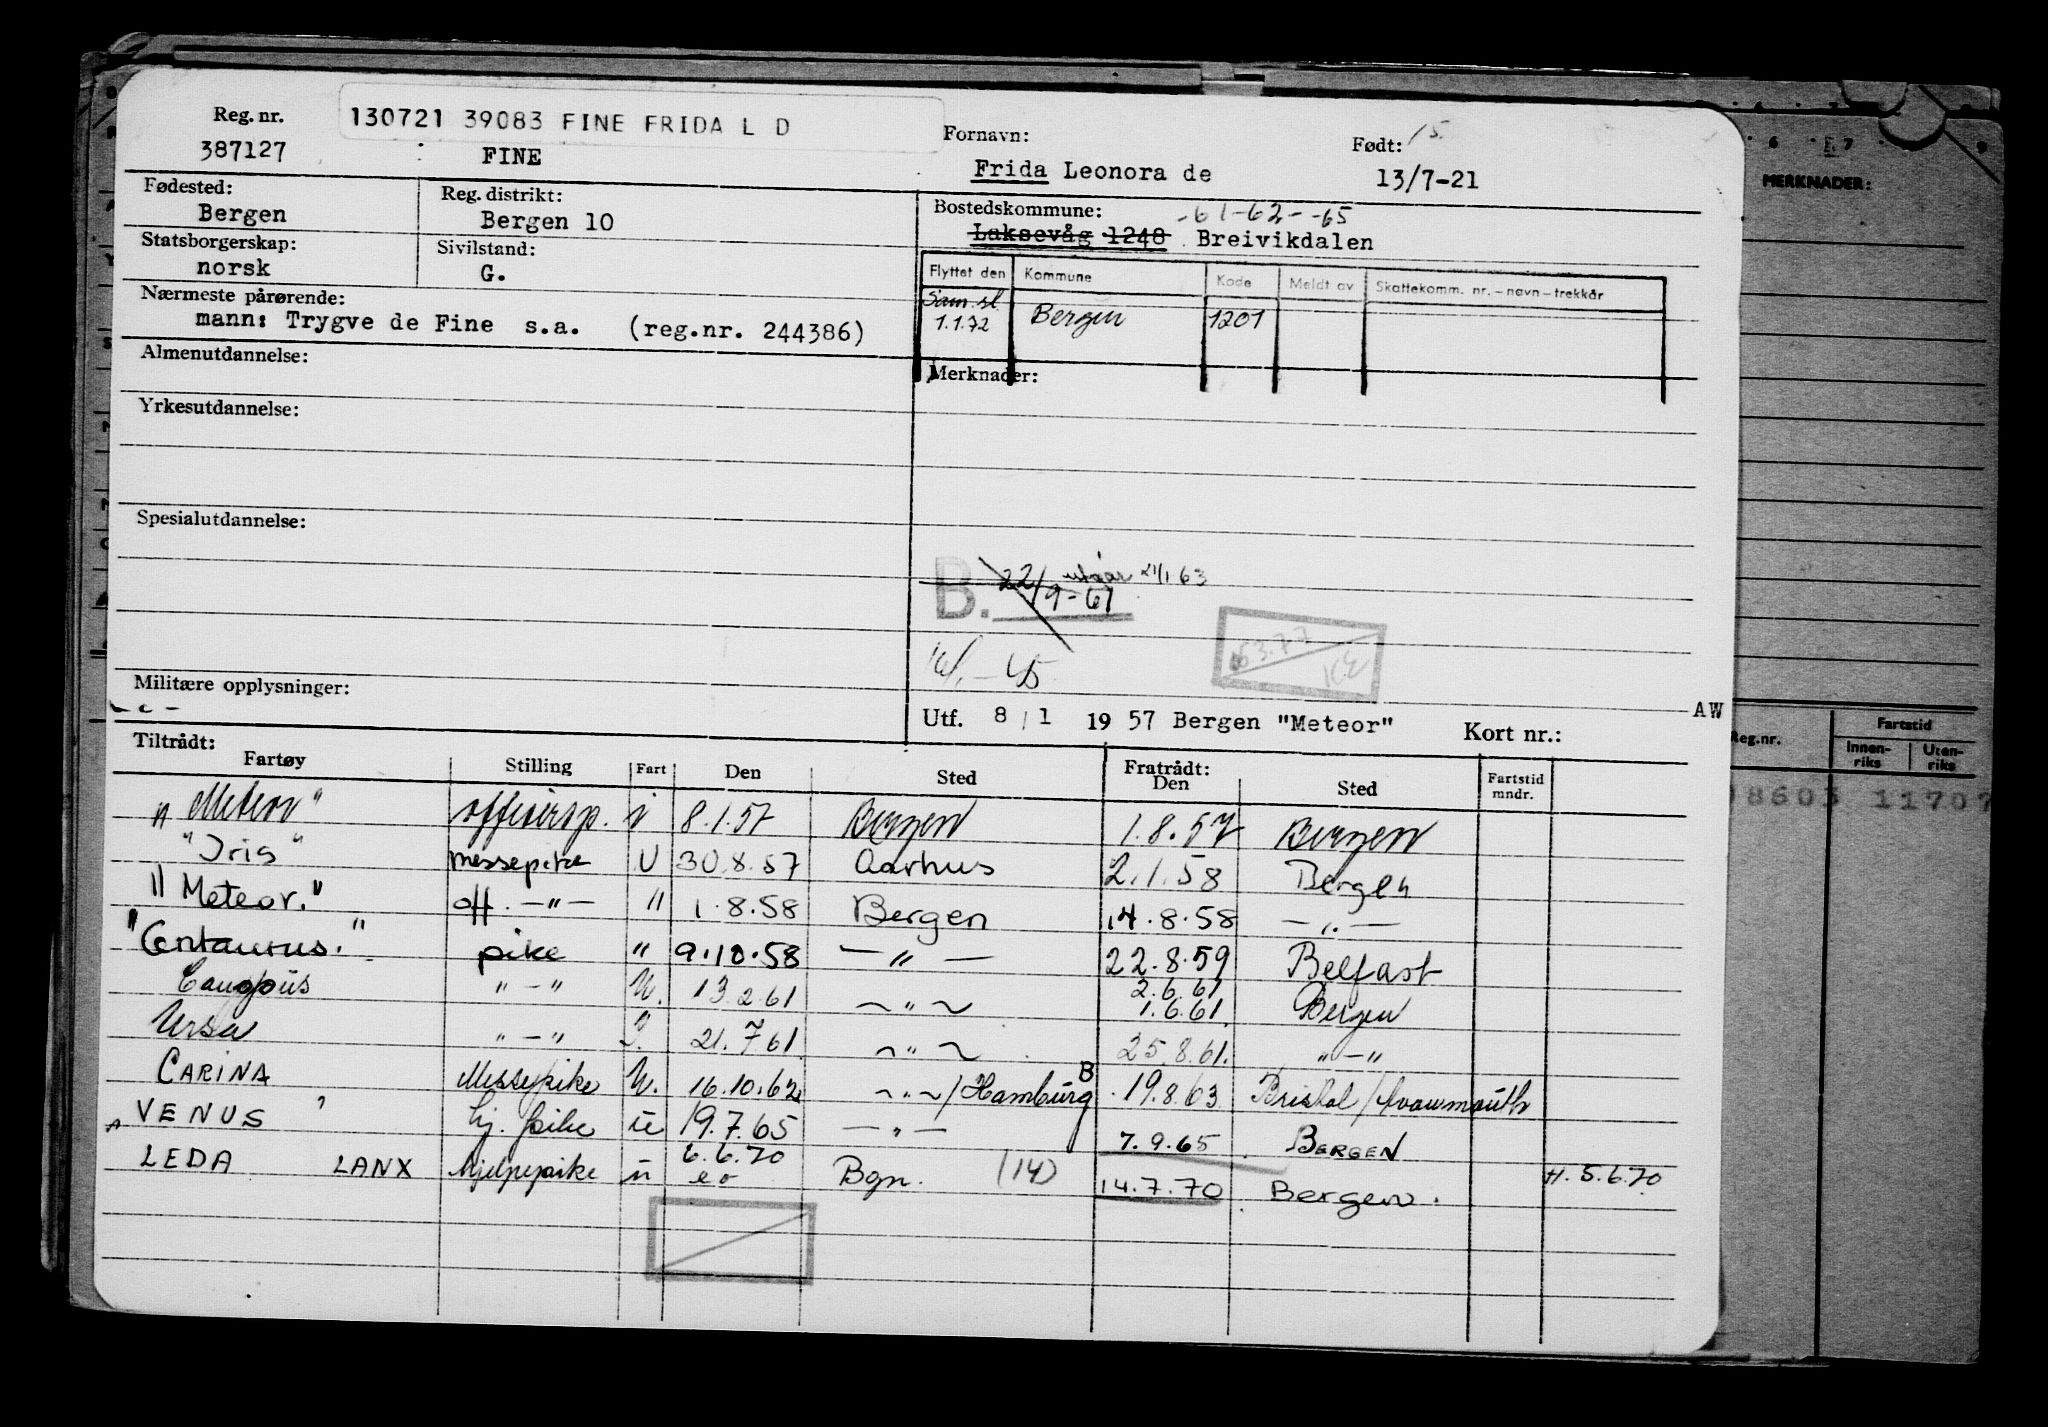 Reg. nr.
387127
130721 39083 FINE FRIDA L D
FINE
Fornavn:
Frida Leonora de
Født: 15
13/7-21
Fødested:
Bergen
Reg. distrikt:
Bergen 10
Bostedskommune: -61-62- -65
Laksevåg 1248 Breivikdalen
Statsborgerskap:
norsk
Sivilstand:
G.
Flyttet den Kommune Kode Meldt av Skattekomm. nr. – navn – trekkår
Sam. sl.
1.1.72 Bergen 1201
Nærmeste pårørende:
mann: Trygve de Fine s.a. (reg.nr. 244386)
Almenutdannelse:
Merknader:
Yrkesutdannelse:
Spesialutdannelse:
B. 22/9-61 utgår 21/1 63
Militære opplysninger:
Utf. 8/1 1957 Bergen "Meteor" Kort nr.:
AW
Tiltrådt:
Fartøy Stilling Fart Den Sted Fratrådt: Den Sted Fartstid mndr.
"Meteor" offisersp. i 8.1.57 Bergen 1.8.57 Bergen
"Iris" messepike U 30.8.57 Aarhus 2.1.58 Bergen
"Meteor." off. —"— " 1.8.58 Bergen 14.8.58 —"—
"Centaurus." pike " 9.10.58 —"— 22.8.59 Belfast
Canopus "—" U. 13.2.61 —"— 2.6.61 1.6.61. Bergen
Ursa "—" I. 21.7.61 —"— 25.8.61. "—"
CARINA Messepike U. 16.10.62 —"—/Hamburg B 19.8.63 Bristol/Avonmouth
VENUS hj. pike u 19.7.65 —"— 7.9.65 BERGEN
LEDA LANX hjelpepike u 6.6.70 Bgn. (14) 14.7.70 Bergen. H. 5.6.70
MERKNADER:
Reg.nr. Fartstid
Innenriks Utenriks
8603 11707